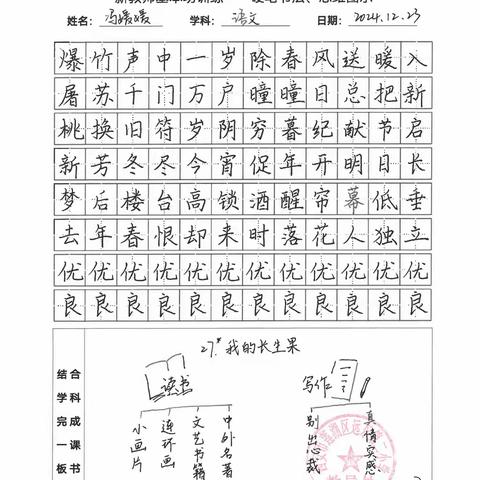 姓名：冯媛媛 学科：语文 日期：2024.12.23
爆竹声中一岁除春风送暖入
屠苏千门万户瞳瞳日总把新
桃换旧符岁阴穷暮纪献节启
新芳冬尽今宵促年开明日长
梦后楼台高锁酒醒帘幕低垂
去年春恨却来时落花人独立
优优优优优优优优优优优优
良良良良良良良良良良良良
27.*我的长生果
结合
学科
完成
一课
板书
读书
小画片
连环画
文艺书籍
中外名著
写作
别出心裁
真情实感